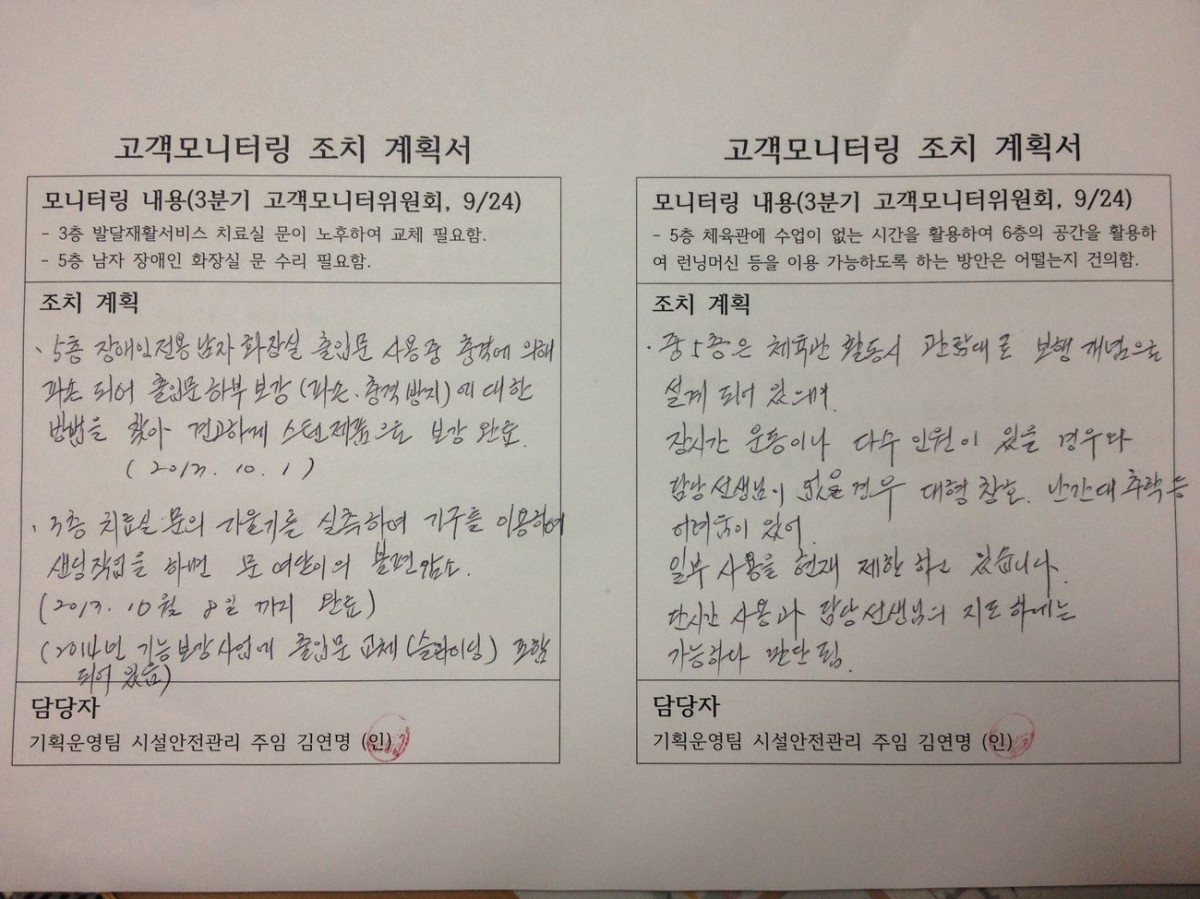 고객모니터링 조치 계획서
모니터링 내용(3분기 고객모니터위원회, 9/24)
- 3층 발달재활서비스 치료실 문이 노후하여 교체 필요함.
- 5층 남자 장애인 화장실 문 수리 필요함.
조치 계획
· 5층 장애인전용남자 화장실 출입문 사용중 충격에 의해
파손 되어 출입문하부 보강 (파손·충격방지)에 대한
방법을 찾아 견고하게 스텐제품으로 보강 완료.
(2013. 10. 1)
· 3층 치료실 문의 기울기를 실측하여 기구를 이용하여
샌딩작업을 하면 문 여닫이의 불편감소.
(2013. 10월 8일 까지 완료)
(2014년 기능보강사업에 출입문 교체(슬라이딩) 포함
되어 있음)
담당자
기획운영팀 시설안전관리 주임 김연명 (인)
고객모니터링 조치 계획서
모니터링 내용(3분기 고객모니터위원회, 9/24)
- 5층 체육관에 수업이 없는 시간을 활용하여 6층의 공간을 활용하
여 런닝머신 등을 이용 가능하도록 하는 방안은 어떨는지 건의함.
조치 계획
· 중5층은 체육관 활동시 관람대로 보행 개념으로
설계 되어 있으며,
장시간 운동이나 다수 인원이 있을 경우와
담당선생님이 없을경우 대형 참호. 난간대 추락 등
어려움이 있어.
일부 사용을 현재 제한 하고 있습니다.
단시간 사용과 담당선생님의 지도 하에는
가능하다 판단 됨.
담당자
기획운영팀 시설안전관리 주임 김연명 (인)